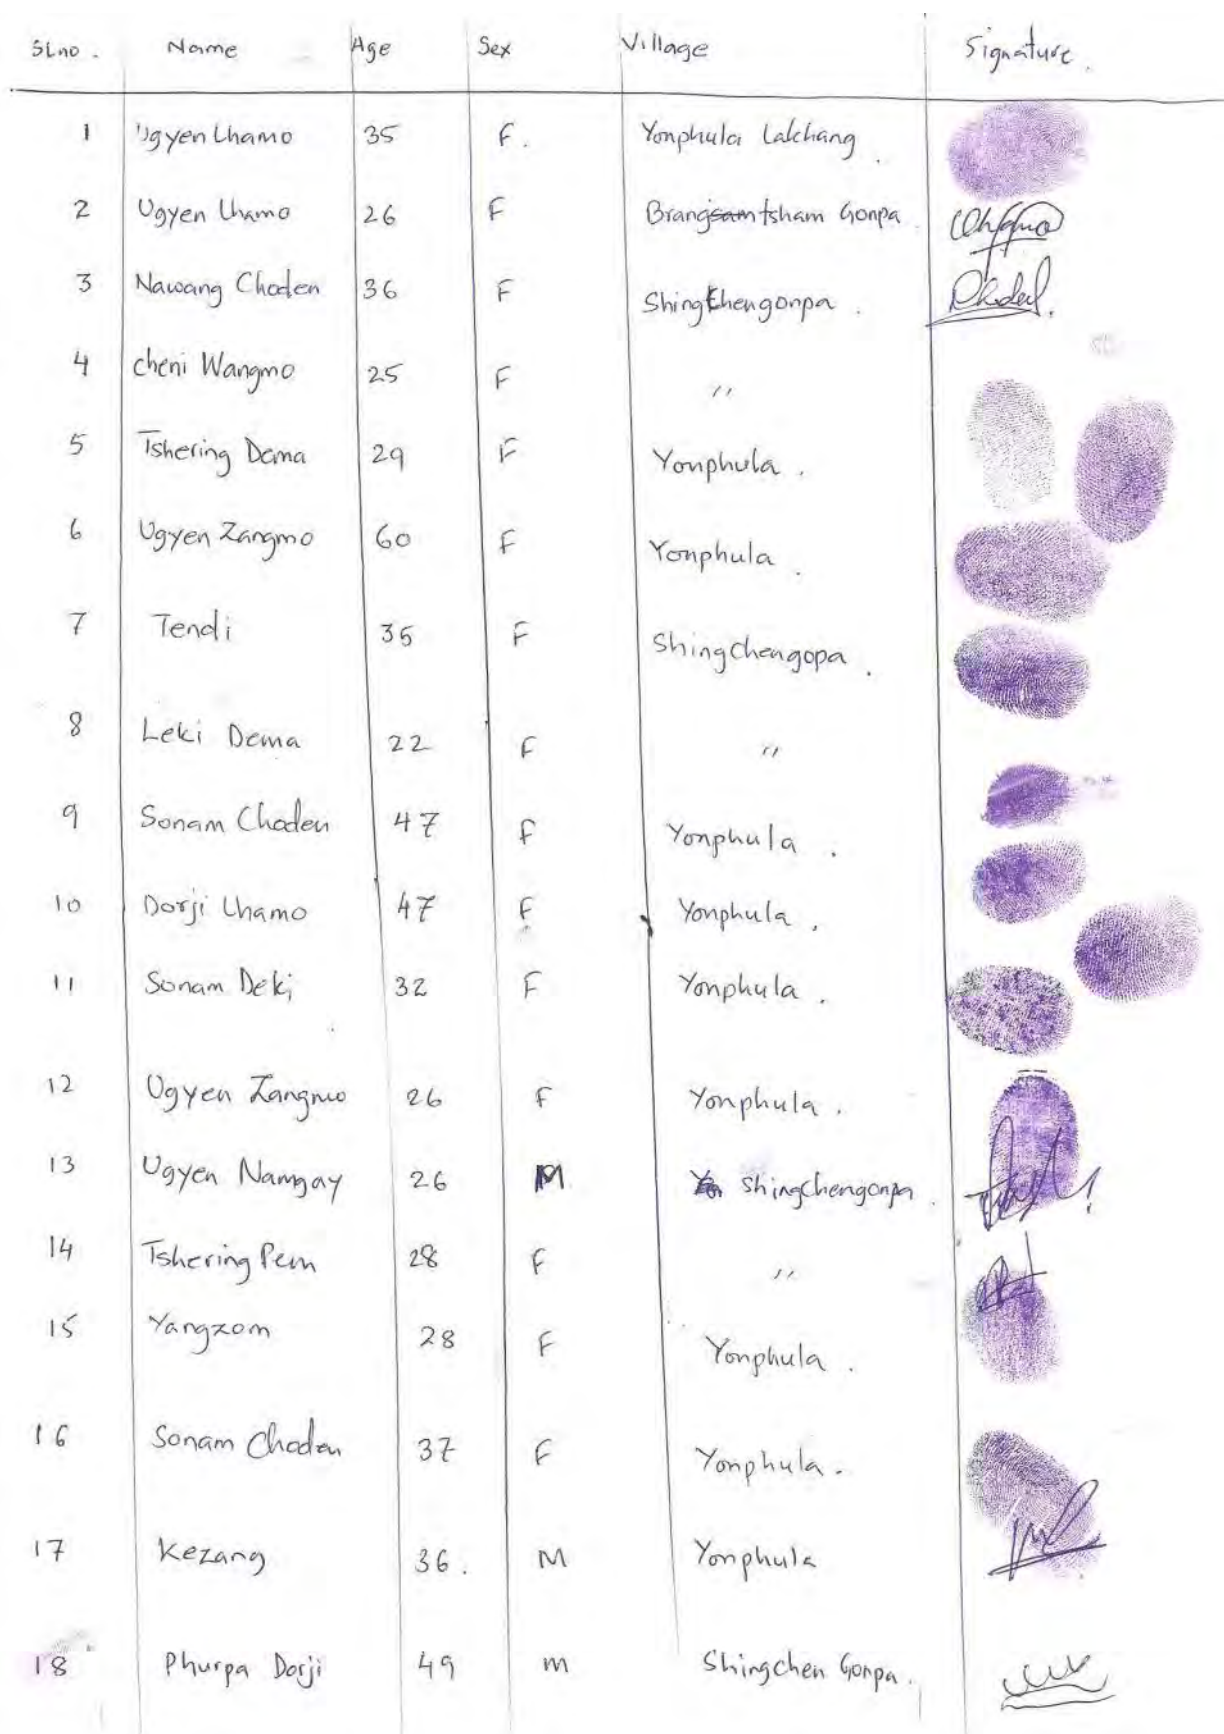 Sl.no. Name Age Sex Village Signature.
1 Ugyen Lhamo 35 F. Yonphula Lalchang.
2 Ugyen Lhamo 26 F Brangsamtsham Gonpa
3 Nawang Choden 36 F Shingchengonpa.
4 cheni Wangmo 25 F "
5 Tshering Dema 29 F Yonphula.
6 Ugyen Zangmo 60 F Yonphula.
7 Tendi 35 F Shingchengopa.
8 Leki Dema 22 F "
9 Sonam Choden 47 F Yonphula.
10 Dorji Lhamo 47 F Yonphula.
11 Sonam Deki 32 F Yonphula.
12 Ugyen Zangmo 26 F Yonphula.
13 Ugyen Namgay 26 M Shingchengonpa.
14 Tshering Pem 28 F "
15 Yangzom 28 F Yonphula.
16 Sonam Choden 37 F Yonphula.
17 Kezang 36. M Yonphula
18 Phurpa Dorji 49 M Shingchen Gonpa.